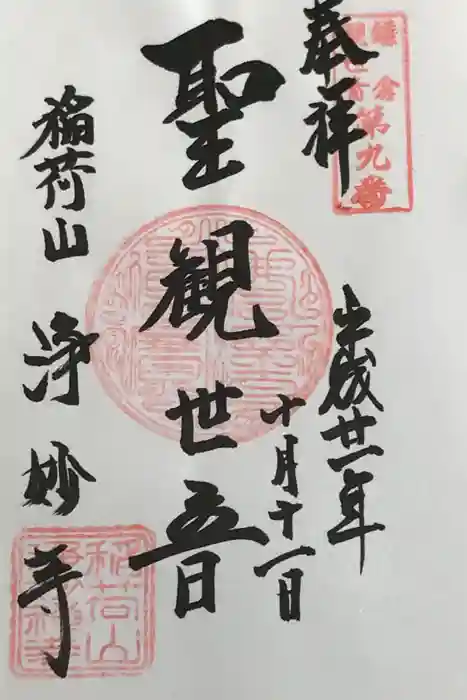 鎌倉
観世音
第九番
奉拝
平成廿一年
十月十一日
聖観世音
稲荷山
浄妙寺
稲荷山